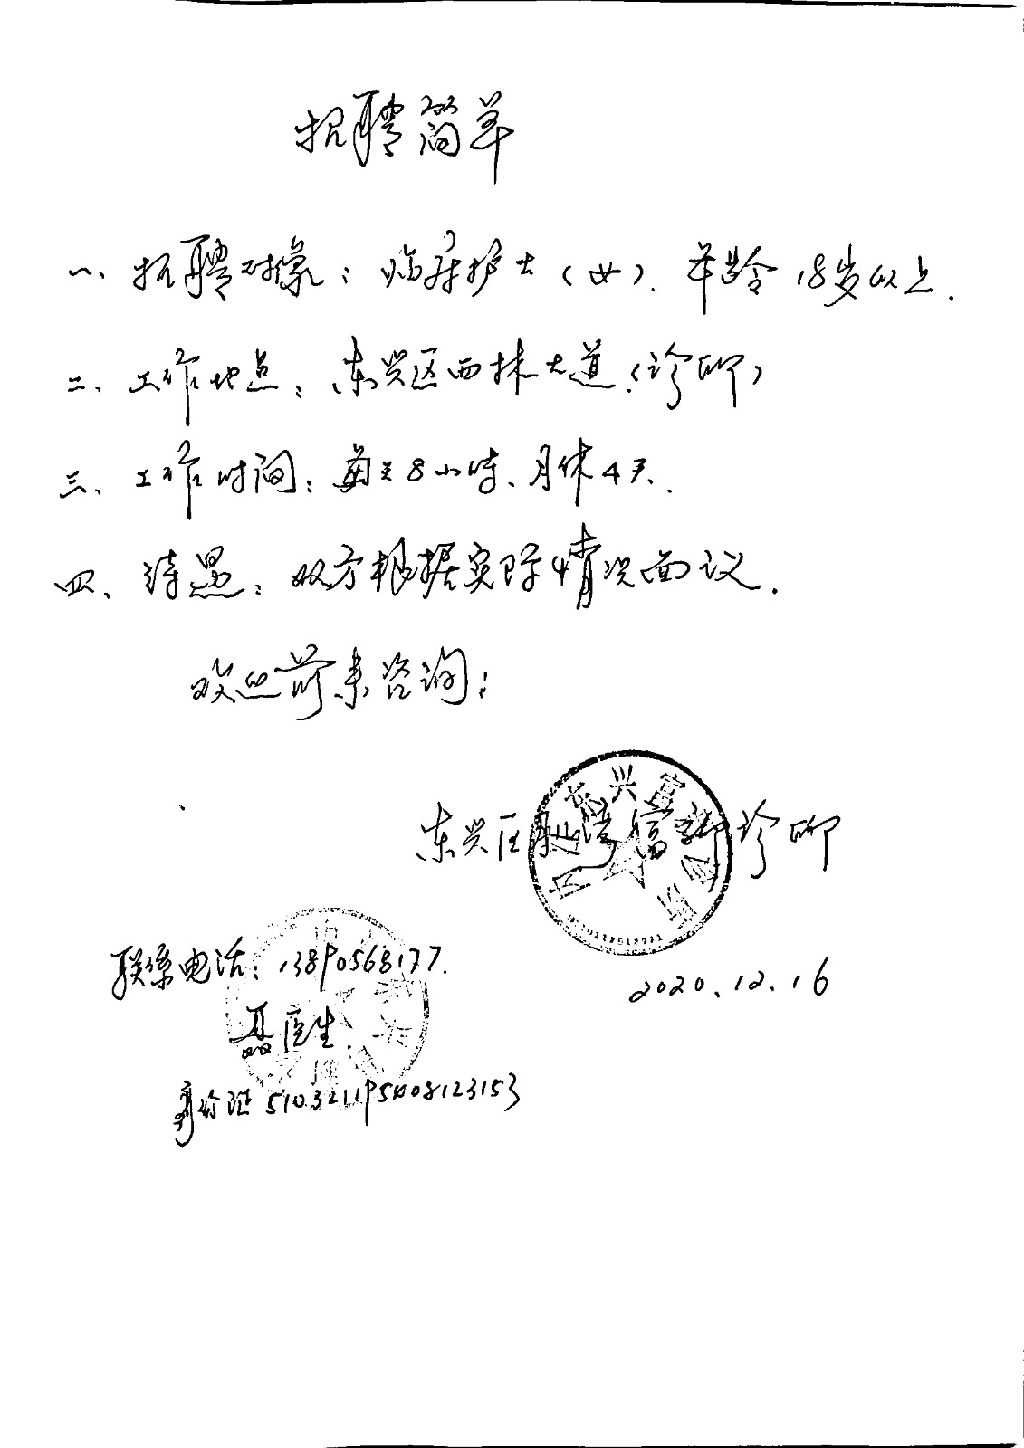 招聘简单
一、招聘对象：临床护士（女）. 年龄18岁以上.
二、工作地点：东兴区西林大道（诊所）
三、工作时间：每天8小时、月休4天.
四、待遇：双方根据实际情况面议.
欢迎前来咨询：
东兴区 富 诊所
联系电话：13890568177.
2020.12.16
聂医生
身份证